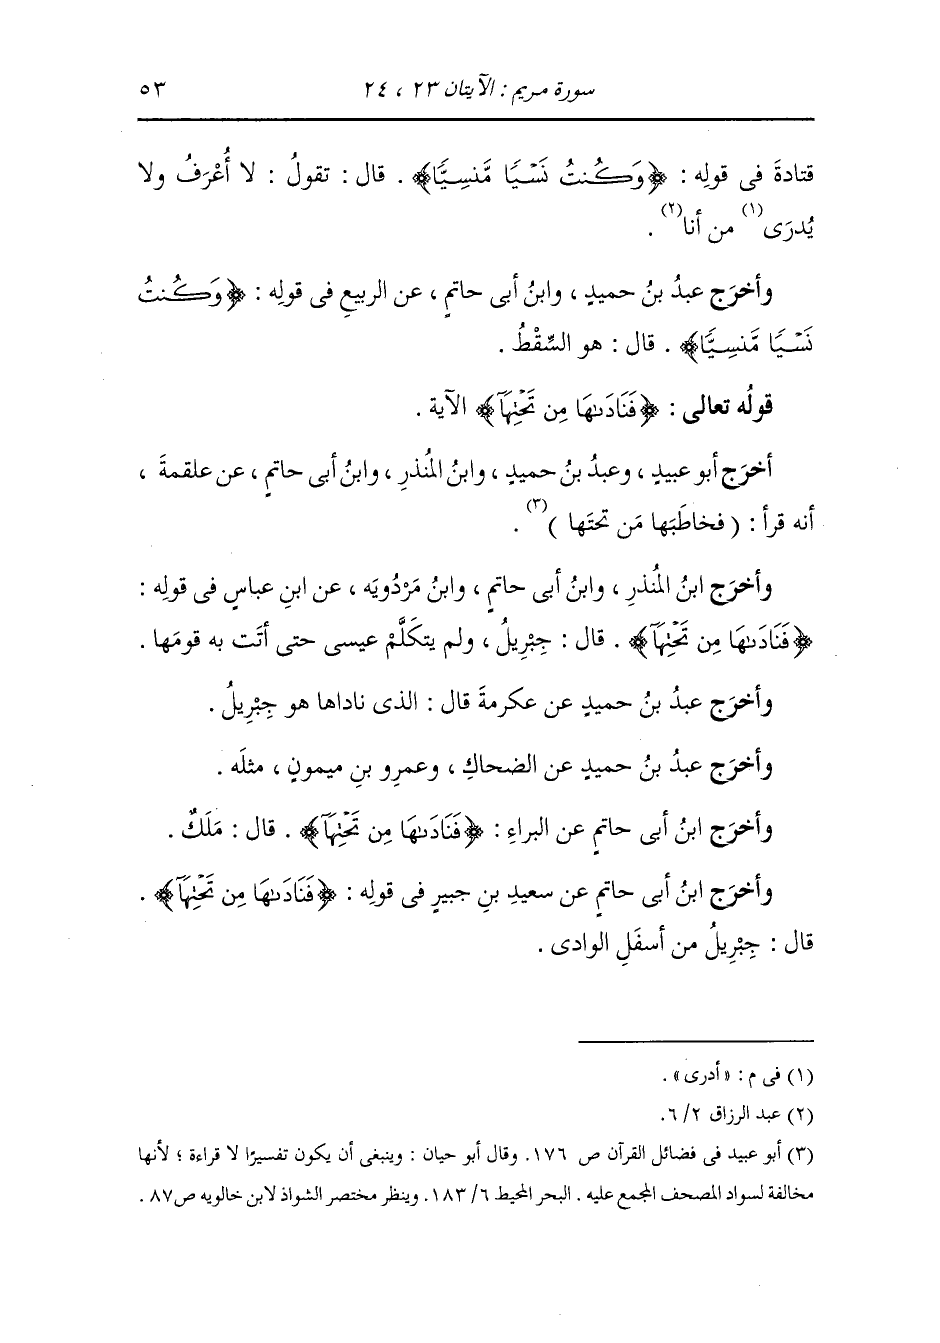 سورة مريم : الآيتان ٢٣ ، ٢٤ ٥٣
قتادةَ فى قولِه : ﴿وَكُنتُ نَسْيًا مَّنسِيًّا﴾ . قال : تقولُ : لا أُعْرَفُ ولا
يُدرَى(١) من أنا(٢) .
وأخرَج عبدُ بنُ حميدٍ ، وابنُ أبى حاتمٍ ، عن الربيعِ فى قولِه : ﴿وَكُنتُ
نَسْيًا مَّنسِيًّا﴾ . قال : هو السِّقْطُ .
قولُه تعالى : ﴿فَنَادَىٰهَا مِن تَحْتِهَآ﴾ الآية .
أخرَج أبو عبيدٍ ، وعبدُ بنُ حميدٍ ، وابنُ المُنذرِ ، وابنُ أبى حاتمٍ ، عن علقمةَ ،
أنه قرأ : ( فخاطَبَها مَن تحتَها )(٣) .
وأخرَج ابنُ المُنذرِ ، وابنُ أبى حاتمٍ ، وابنُ مَرْدُويَه ، عن ابنِ عباسٍ فى قولِه :
﴿فَنَادَىٰهَا مِن تَحْتِهَآ﴾ . قال : جِبْرِيلُ ، ولم يتكَلَّمْ عيسى حتى أتَت به قومَها .
وأخرَج عبدُ بنُ حميدٍ عن عكرمةَ قال : الذى ناداها هو جِبْرِيلُ .
وأخرَج عبدُ بنُ حميدٍ عن الضحاكِ ، وعمرِو بنِ ميمونٍ ، مثلَه .
وأخرَج ابنُ أبى حاتمٍ عن البراءِ : ﴿فَنَادَىٰهَا مِن تَحْتِهَآ﴾ . قال : مَلَكٌ .
وأخرَج ابنُ أبى حاتمٍ عن سعيدِ بنِ جبيرٍ فى قولِه : ﴿فَنَادَىٰهَا مِن تَحْتِهَآ﴾ .
قال : جِبْرِيلُ من أسفَلِ الوادى .
(١) فى م : «أدرى» .
(٢) عبد الرزاق ٢/ ٦.
(٣) أبو عبيد فى فضائل القرآن ص ١٧٦. وقال أبو حيان : وينبغى أن يكون تفسيرًا لا قراءة ؛ لأنها
مخالفة لسواد المصحف المجمع عليه . البحر المحيط ٦/ ١٨٣. وينظر مختصر الشواذ لابن خالويه ص٨٧ .